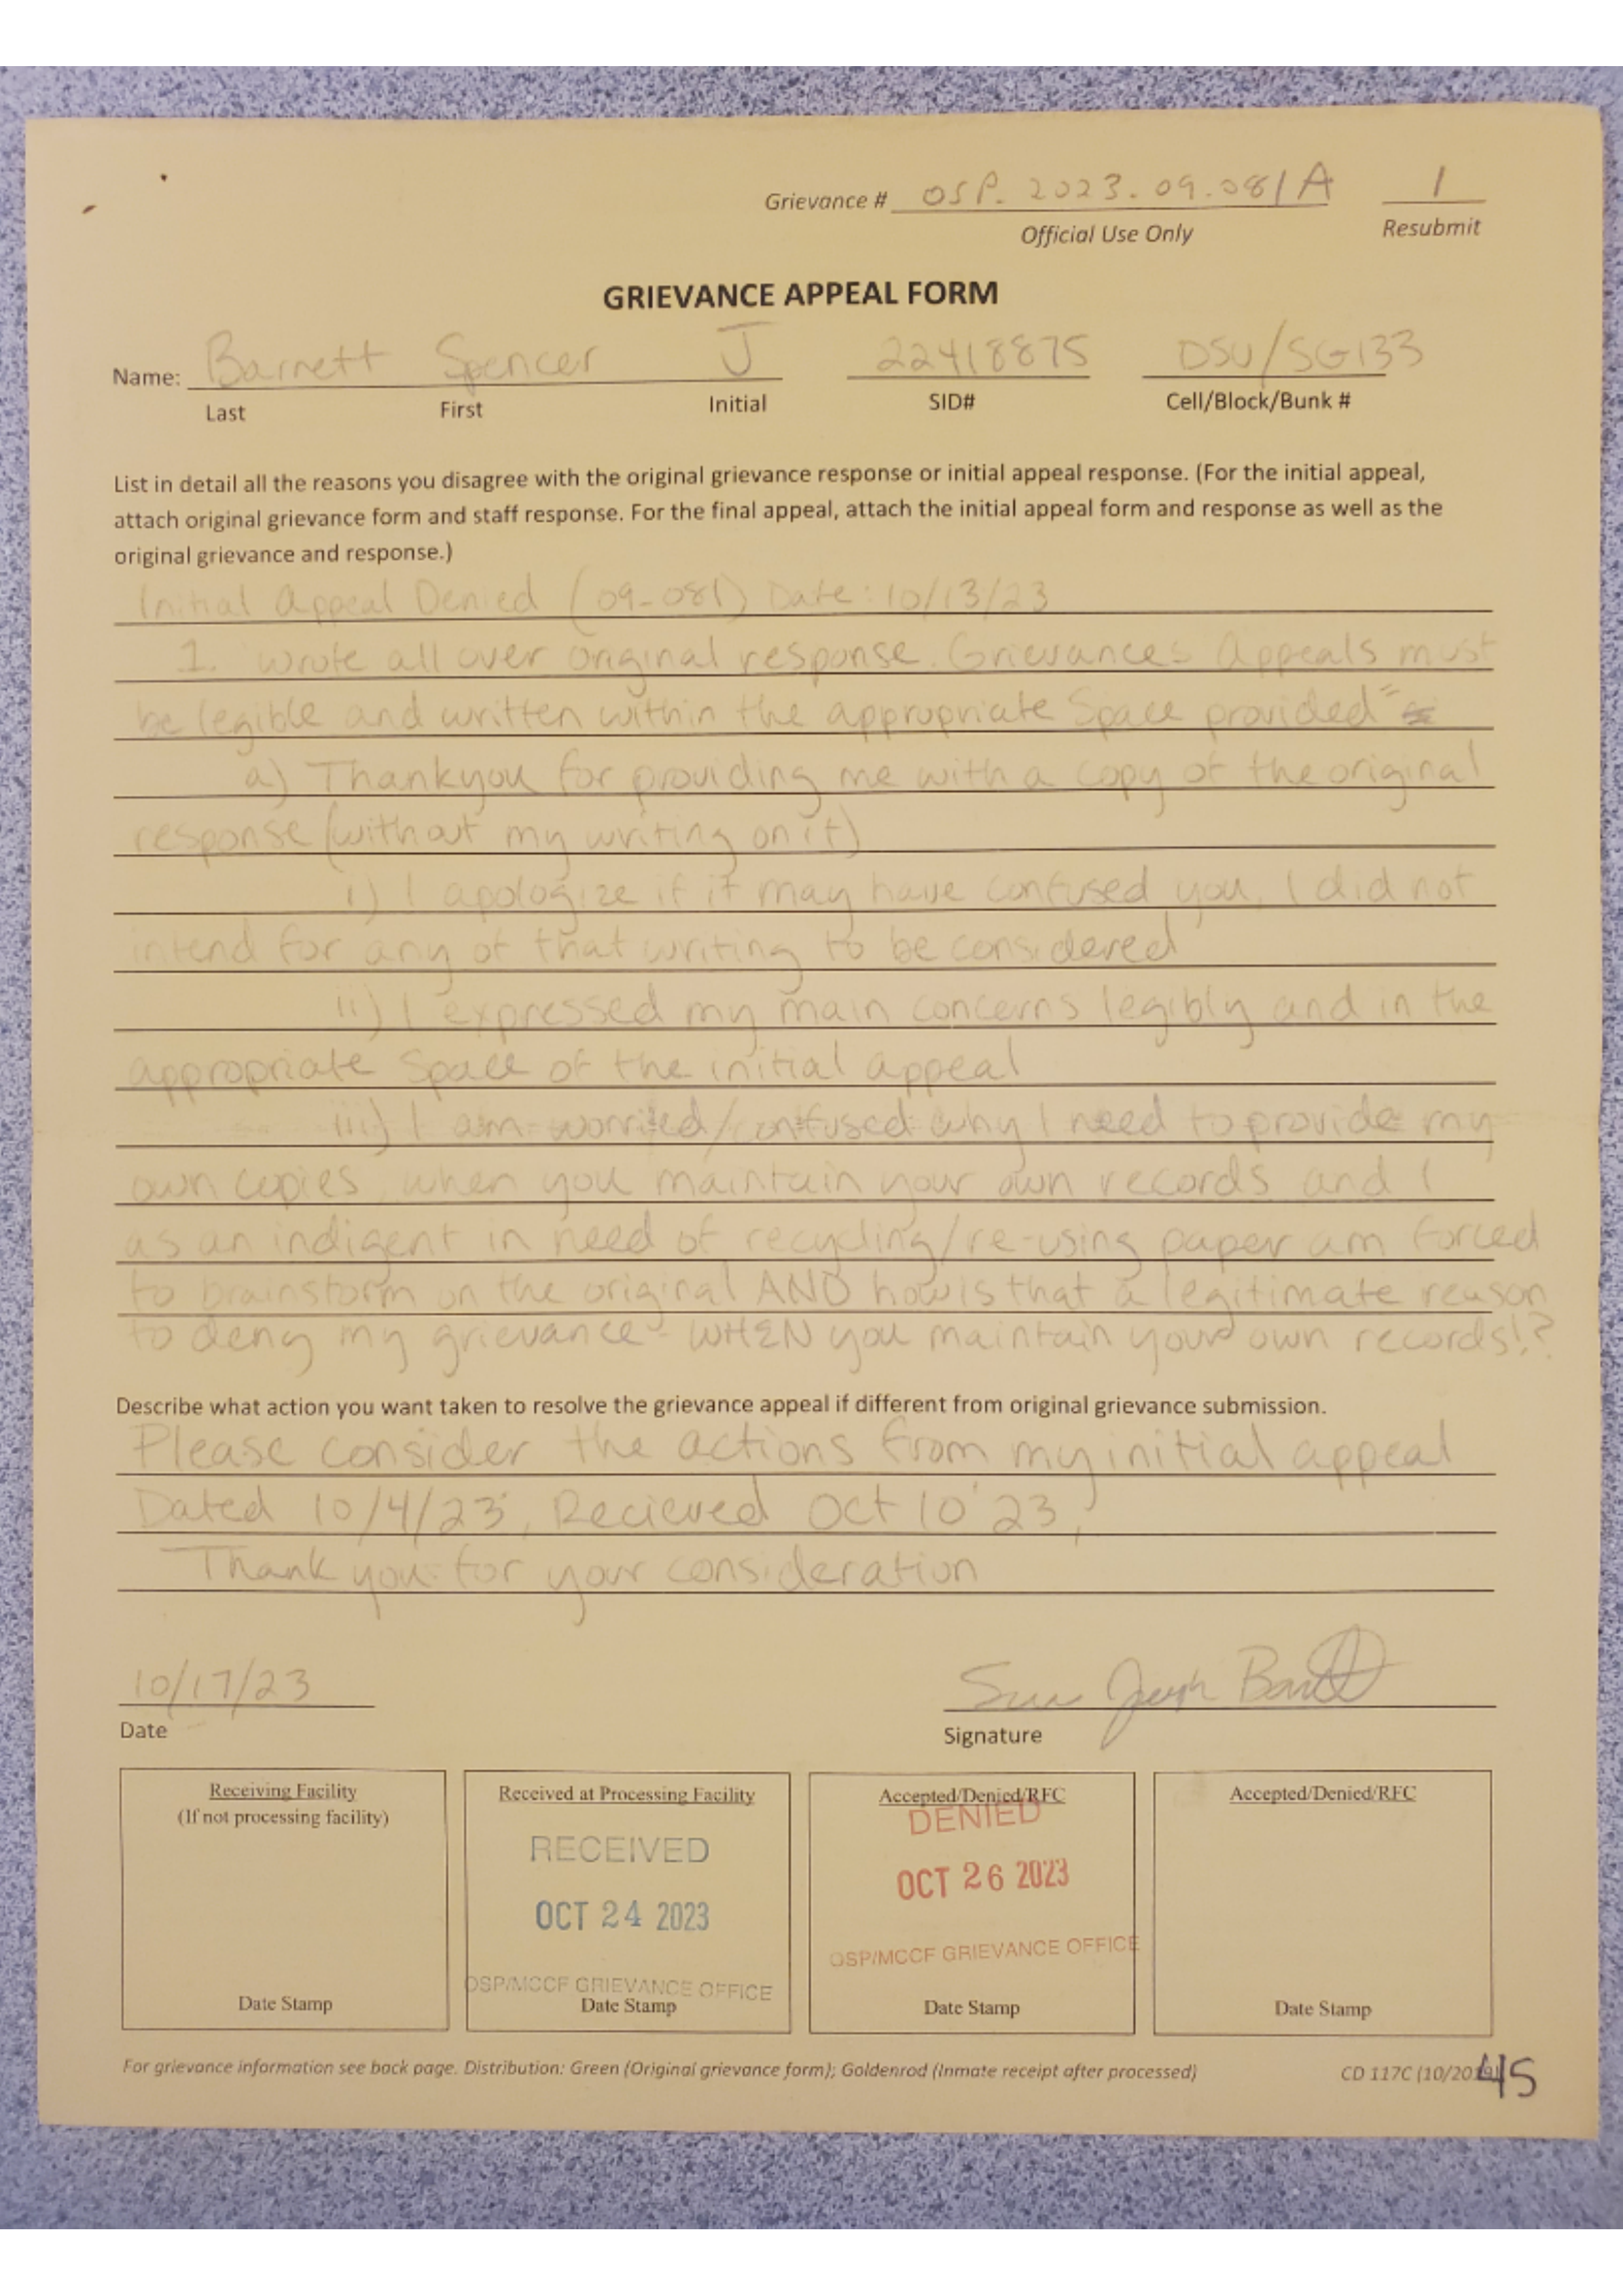 Grievance # OSP. 2023.09.081A 1
Official Use Only Resubmit
GRIEVANCE APPEAL FORM
Name: Barnett Spencer J 22418875 DSU/SG133
Last First Initial SID# Cell/Block/Bunk #
List in detail all the reasons you disagree with the original grievance response or initial appeal response. (For the initial appeal,
attach original grievance form and staff response. For the final appeal, attach the initial appeal form and response as well as the
original grievance and response.)
Initial Appeal Denied (09-081) Date: 10/13/23
1. wrote all over original response. Grievances Appeals must
be legible and written within the appropriate space provided"
a) Thankyou for providing me with a copy of the original
response (without my writing on it)
i) I apologize if it may have confused you, I did not
intend for any of that writing to be considered
ii) I expressed my main concerns legibly and in the
appropriate space of the initial appeal
iii) I am worried/confused why I need to provide my
own copies, when you maintain your own records and I
as an indigent in need of recycling/re-using paper am forced
to brainstorm on the original AND how is that a legitimate reason
to deny my grievance - WHEN you maintain your own records!?
Describe what action you want taken to resolve the grievance appeal if different from original grievance submission.
Please consider the actions from my initial appeal
Dated 10/4/23, Recieved Oct 10 '23,
Thank you for your consideration
10/17/23
Date Signature
Receiving Facility
(If not processing facility)
Date Stamp
Received at Processing Facility
RECEIVED
OCT 24 2023
OSP/MCCF GRIEVANCE OFFICE
Date Stamp
Accepted/Denied/RFC
DENIED
OCT 26 2023
OSP/MCCF GRIEVANCE OFFICE
Date Stamp
Accepted/Denied/RFC
Date Stamp
For grievance information see back page. Distribution: Green (Original grievance form); Goldenrod (Inmate receipt after processed) CD 117C (10/2019) 45